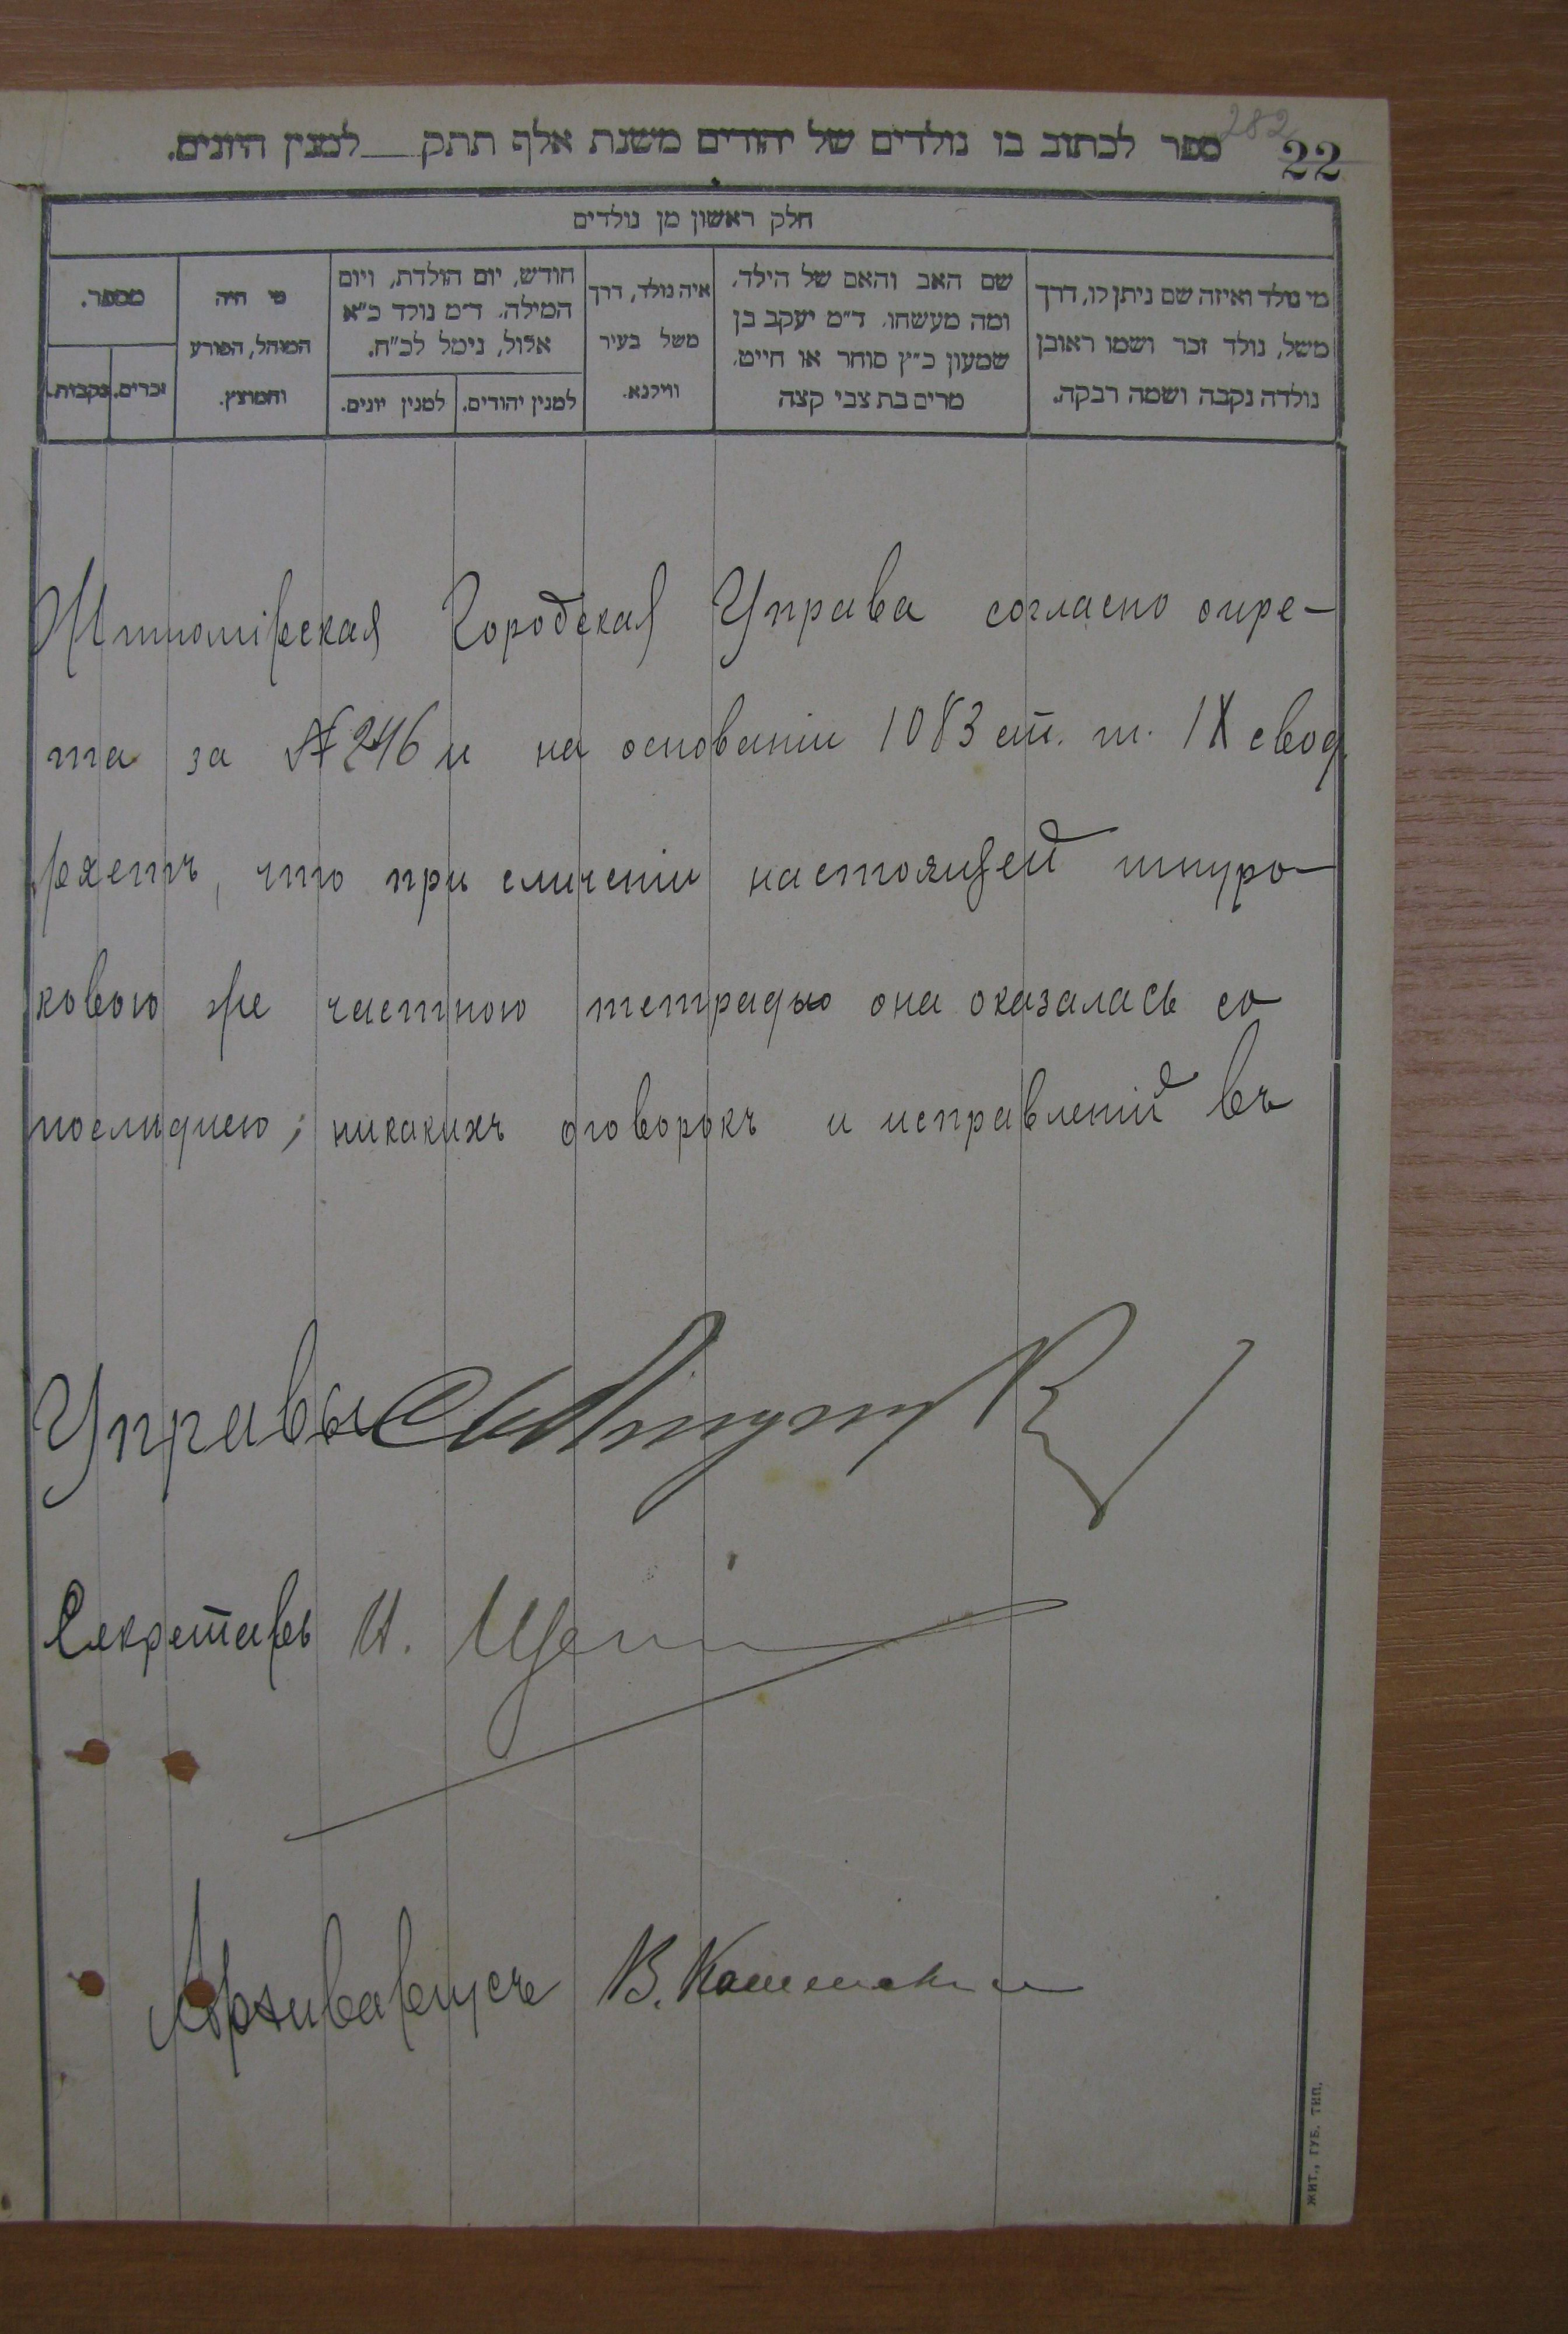 282
22
ספר לכתוב בו נולדים של יהודים משנת אלף תתק___למנין היונים.
חלק ראשון מן נולדים
מי נולד ואיזה שם ניתן לו, דרך
משל, נולד זכר ושמו ראובן
נולדה נקבה ושמה רבקה.
שם האב והאם של הילד,
ומה מעשהו. ד״מ יעקב בן
שמעון כ״ץ סוחר או חייט.
מרים בת צבי קצה
איה נולד, דרך
משל בעיר
ווילנא.
חודש, יום הולדת, ויום
המילה. ד״מ נולד כ״א
אלול, נימל לכ״ח.
למנין יהודים.
למנין יונים.
מי היה
המוהל, הפורע
והמוצץ.
מספר.
זכרים.
נקבות.
Житомірская Городская Управа согласно опре-
та за № 246 и на основаніи 1083 ст. т. IX свод.
ряетъ, что при сличеніи настоящей шнуро-
ковою же частною тетрадью она оказалась со
послѣднею; никакихъ оговорокъ и исправленій въ
Управы
Секретарь И.
Архиваріусъ В. Каменскій
ЖИТ., ГУБ. ТИП.